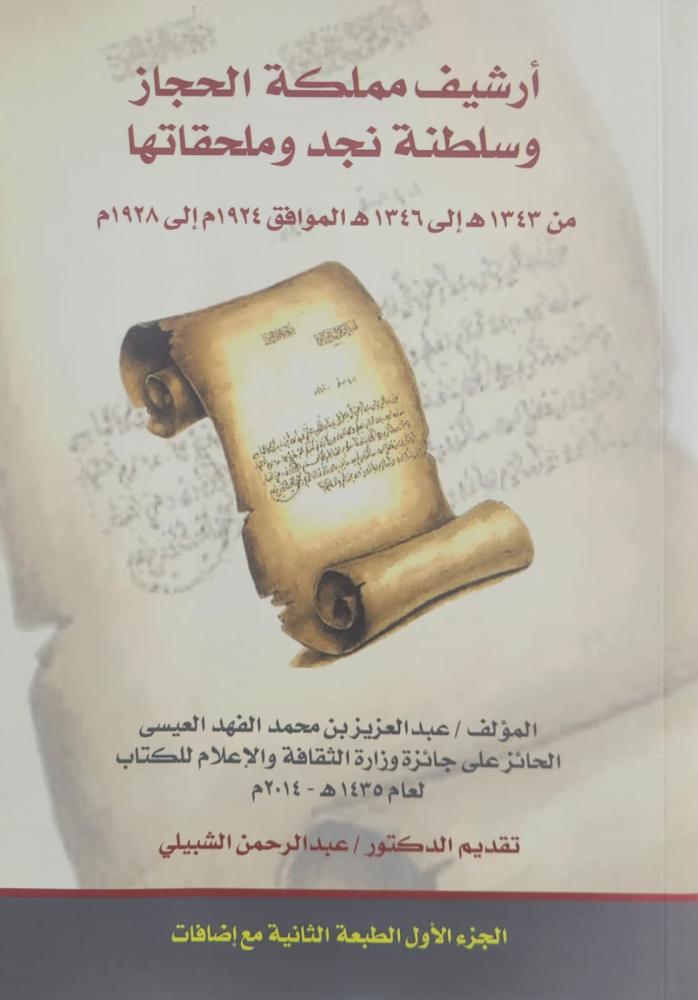 أرشيف مملكة الحجاز
وسلطنة نجد وملحقاتها
من ١٣٤٣هـ إلى ١٣٤٦هـ الموافق ١٩٢٤م إلى ١٩٢٨م
المؤلف / عبدالعزيز بن محمد الفهد العيسى
الحائز على جائزة وزارة الثقافة والإعلام للكتاب
لعام ١٤٣٥هـ - ٢٠١٤م
تقديم الدكتور / عبدالرحمن الشبيلي
الجزء الأول الطبعة الثانية مع إضافات